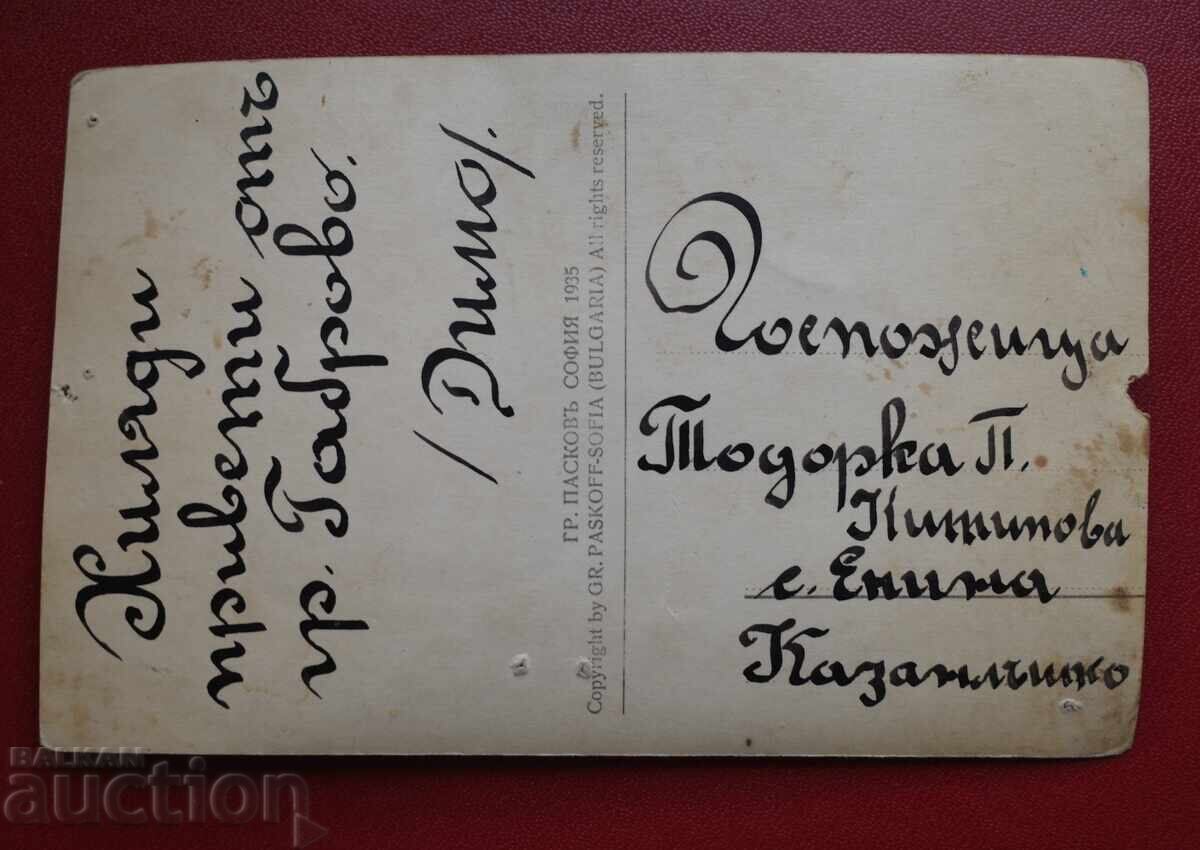 Хиляди
привети отъ
гр. Габрово.
/Димо/.
ГР. ПАСКОВЪ СОФИЯ 1935
Copyright by GR. PASKOFF-SOFIA (BULGARIA) All rights reserved.
Госпожица
Тодорка П.
Китипова
с. Енина
Казанлъшко
BALKAN
auction